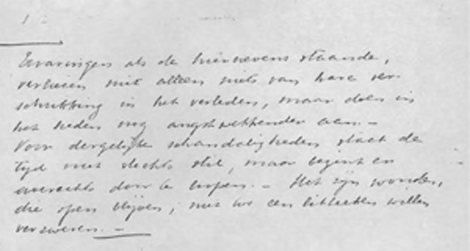 Ervaringen als de hiernevens staande,
verliezen niet alleen niets van hare ver-
schrikking in het verleden, maar doen in
het heden nog angstwekkender aan. —
Voor dergelijke schandaligheden staat de
tijd niet slechts stil, maar en
averechts door te loopen. — Het zijn wonden,
die open blijven, niet tot een willen